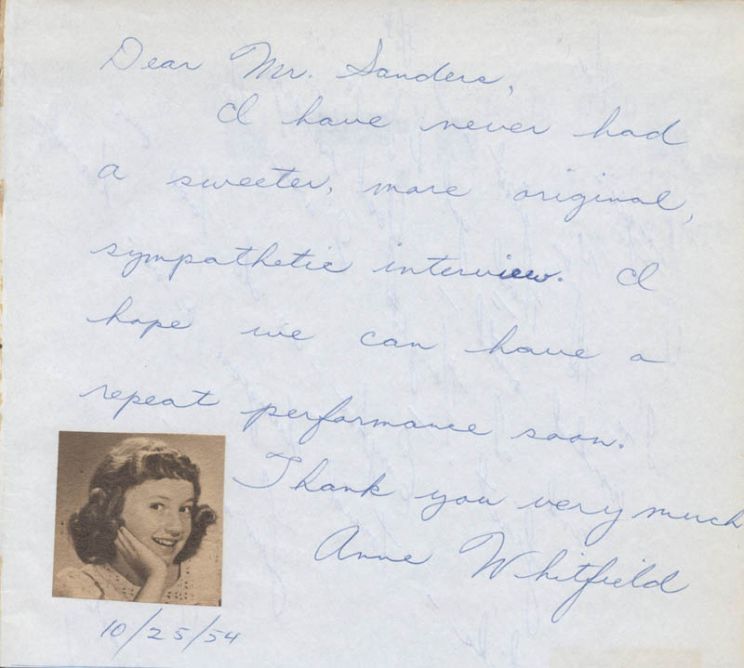 Dear Mr. Sanders,
I have never had
a sweeter, more original,
sympathetic interview. I
hope we can have a
repeat performance soon.
Thank you very much
Anne Whitfield
10/25/54